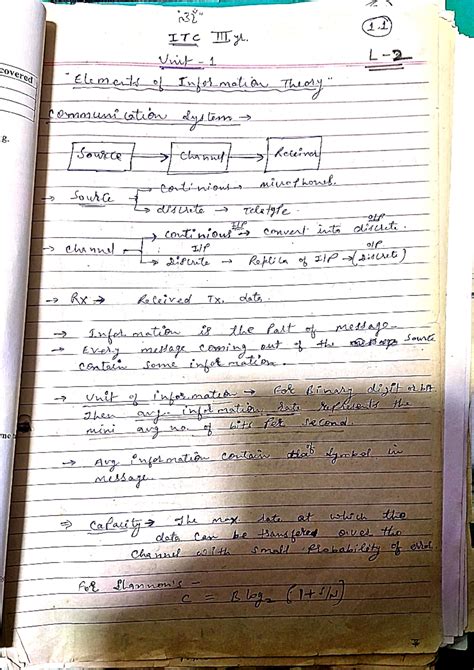 "ॐ"
ITC III yr.
1.1
Unit - 1
L-2
"Elements of Information Theory"
covered
Communication System →
g.
Source → Channel → Receiver
→ Source → Continious → microphones.
→ discrete → Teletype.
→ Channel → continious I/P → convert into discrete O/P
→ Discrete I/P → Replica of I/P → (Discrete) O/P
→ Rx → Received Tx. data.
→ Information is the Part of message.
→ Every message coming out of the source
contain some information.
→ Unit of information → For Binary digit or bit
Then avg. information rate represents the
mini avg no. of bits Per second.
→ Avg information contain Symbol in
message.
⇒ Capacity → The max rate at which the
data can be transfered over the
Channel with small Probability of error
For Shannon's -
C = B log₂ (1 + S/N)